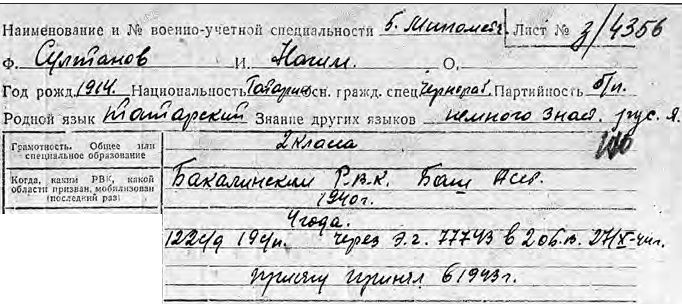 Наименование и № военно-учетной специальности б. Миномет. Лист № 3/4356
Ф. Султанов И. Нагим. О.
Год рожд. 1914. Национальность Татарин Осн. гражд. спец Чернораб. Партийность б/п.
Родной язык Татарский Знание других языков немного зная. рус. я.
Грамотность. Общее или специальное образование
2 класса
Когда, каким РВК, какой области призван, мобилизован (последний раз)
Бакалинским Р.В.К. Баш Асср.
1940г.
4 года.
122 с/д 19 с/п. через Э.г. 77743 в 206.в. 27/X-44г.
присягу принял 6 1943г.